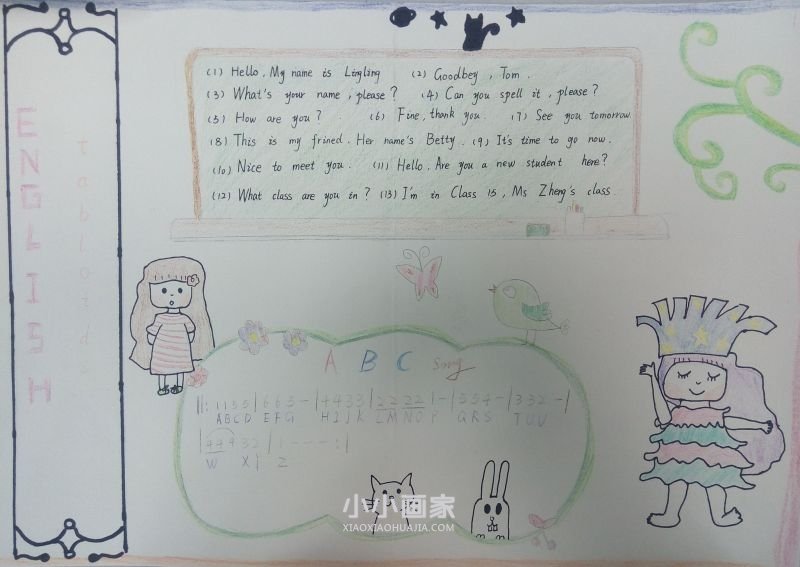 ENGLISH
tabloids
(1) Hello, My name is Lingling (2) Goodbey, Tom.
(3) What's your name, please? (4) Can you spell it, please?
(5) How are you? (6) Fine, thank you. (7) See you tomorrow
(8) This is my frined. Her name's Betty. (9) It's time to go now.
(10) Nice to meet you. (11) Hello. Are you a new student here?
(12) What class are you in? (13) I'm in Class 15, Ms Zheng's class.
A B C song
ABCD EFG HIJK LMNOP QRS TUV
W
小小画家
XIAOXIAOHUAJIA.COM